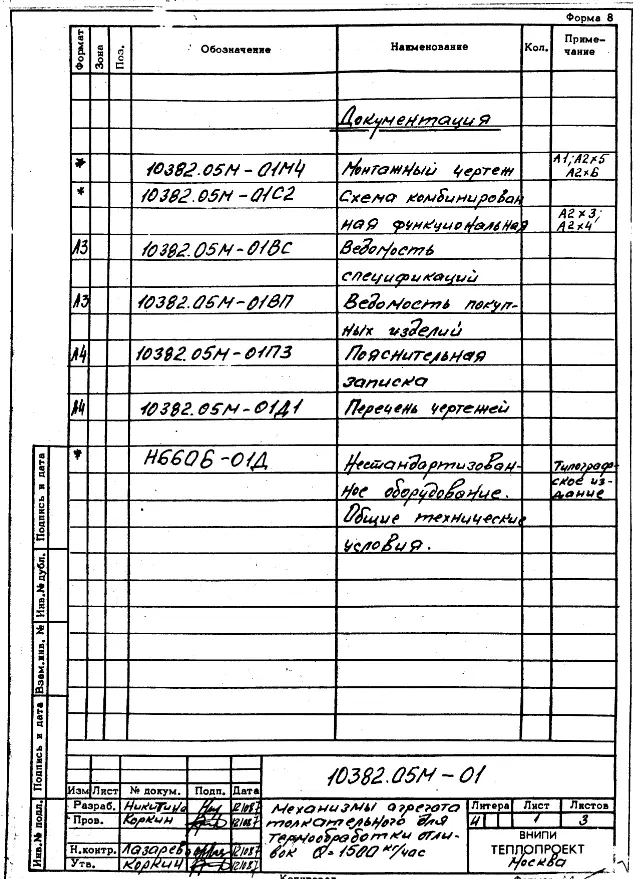 Форма 8
Формат Зона Поз. Обозначение Наименование Кол. Приме-
чание
Документация
* 10382.05М-01М4 Монтажный чертеж А1; А2×5
А2×6
* 10382.05М-01С2 Схема комбинирован
ная функциональная А2×3;
А2×4
А3 10382.05М-01ВС Ведомость
спецификаций
А3 10382.05М-01ВП Ведомость покуп-
ных изделий
А4 10382.05М-01ПЗ Пояснительная
записка
А4 10382.05М-01Д1 Перечень чертежей
* Н6606-01Д Нестандартизован- Типограф-
ное оборудование. ское из-
дание
Общие технические
условия.
Подпись и дата
Инв.№ дубл.
Взам.инв. №
Подпись и дата
Инв.№ подл.
10382.05М-01
Изм Лист № докум. Подп. Дата
Разраб. Никитина
Пров. Коркин
Н.контр. Лазарев
Утв. Коркин
Механизмы агрегата
толкательного для
термообработки отли-
вок Q=1500 кг/час
Литера Лист Листов
И 1 3
ВНИПИ
ТЕПЛОПРОЕКТ
Москва
Копировал